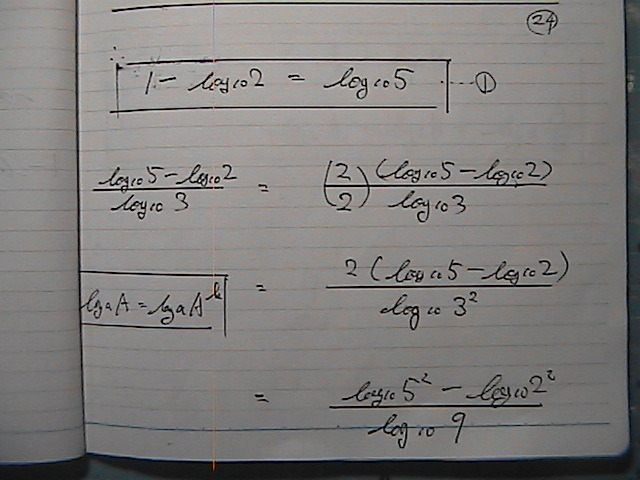 24
1 - log₁₀2 = log₁₀5 ---- ①
(log₁₀5 - log₁₀2)/(log₁₀3) = (2/2) (log₁₀5 - log₁₀2)/(log₁₀3)
= 2(log₁₀5 - log₁₀2)/(log₁₀3²)
= (log₁₀5² - log₁₀2²)/(log₁₀9)